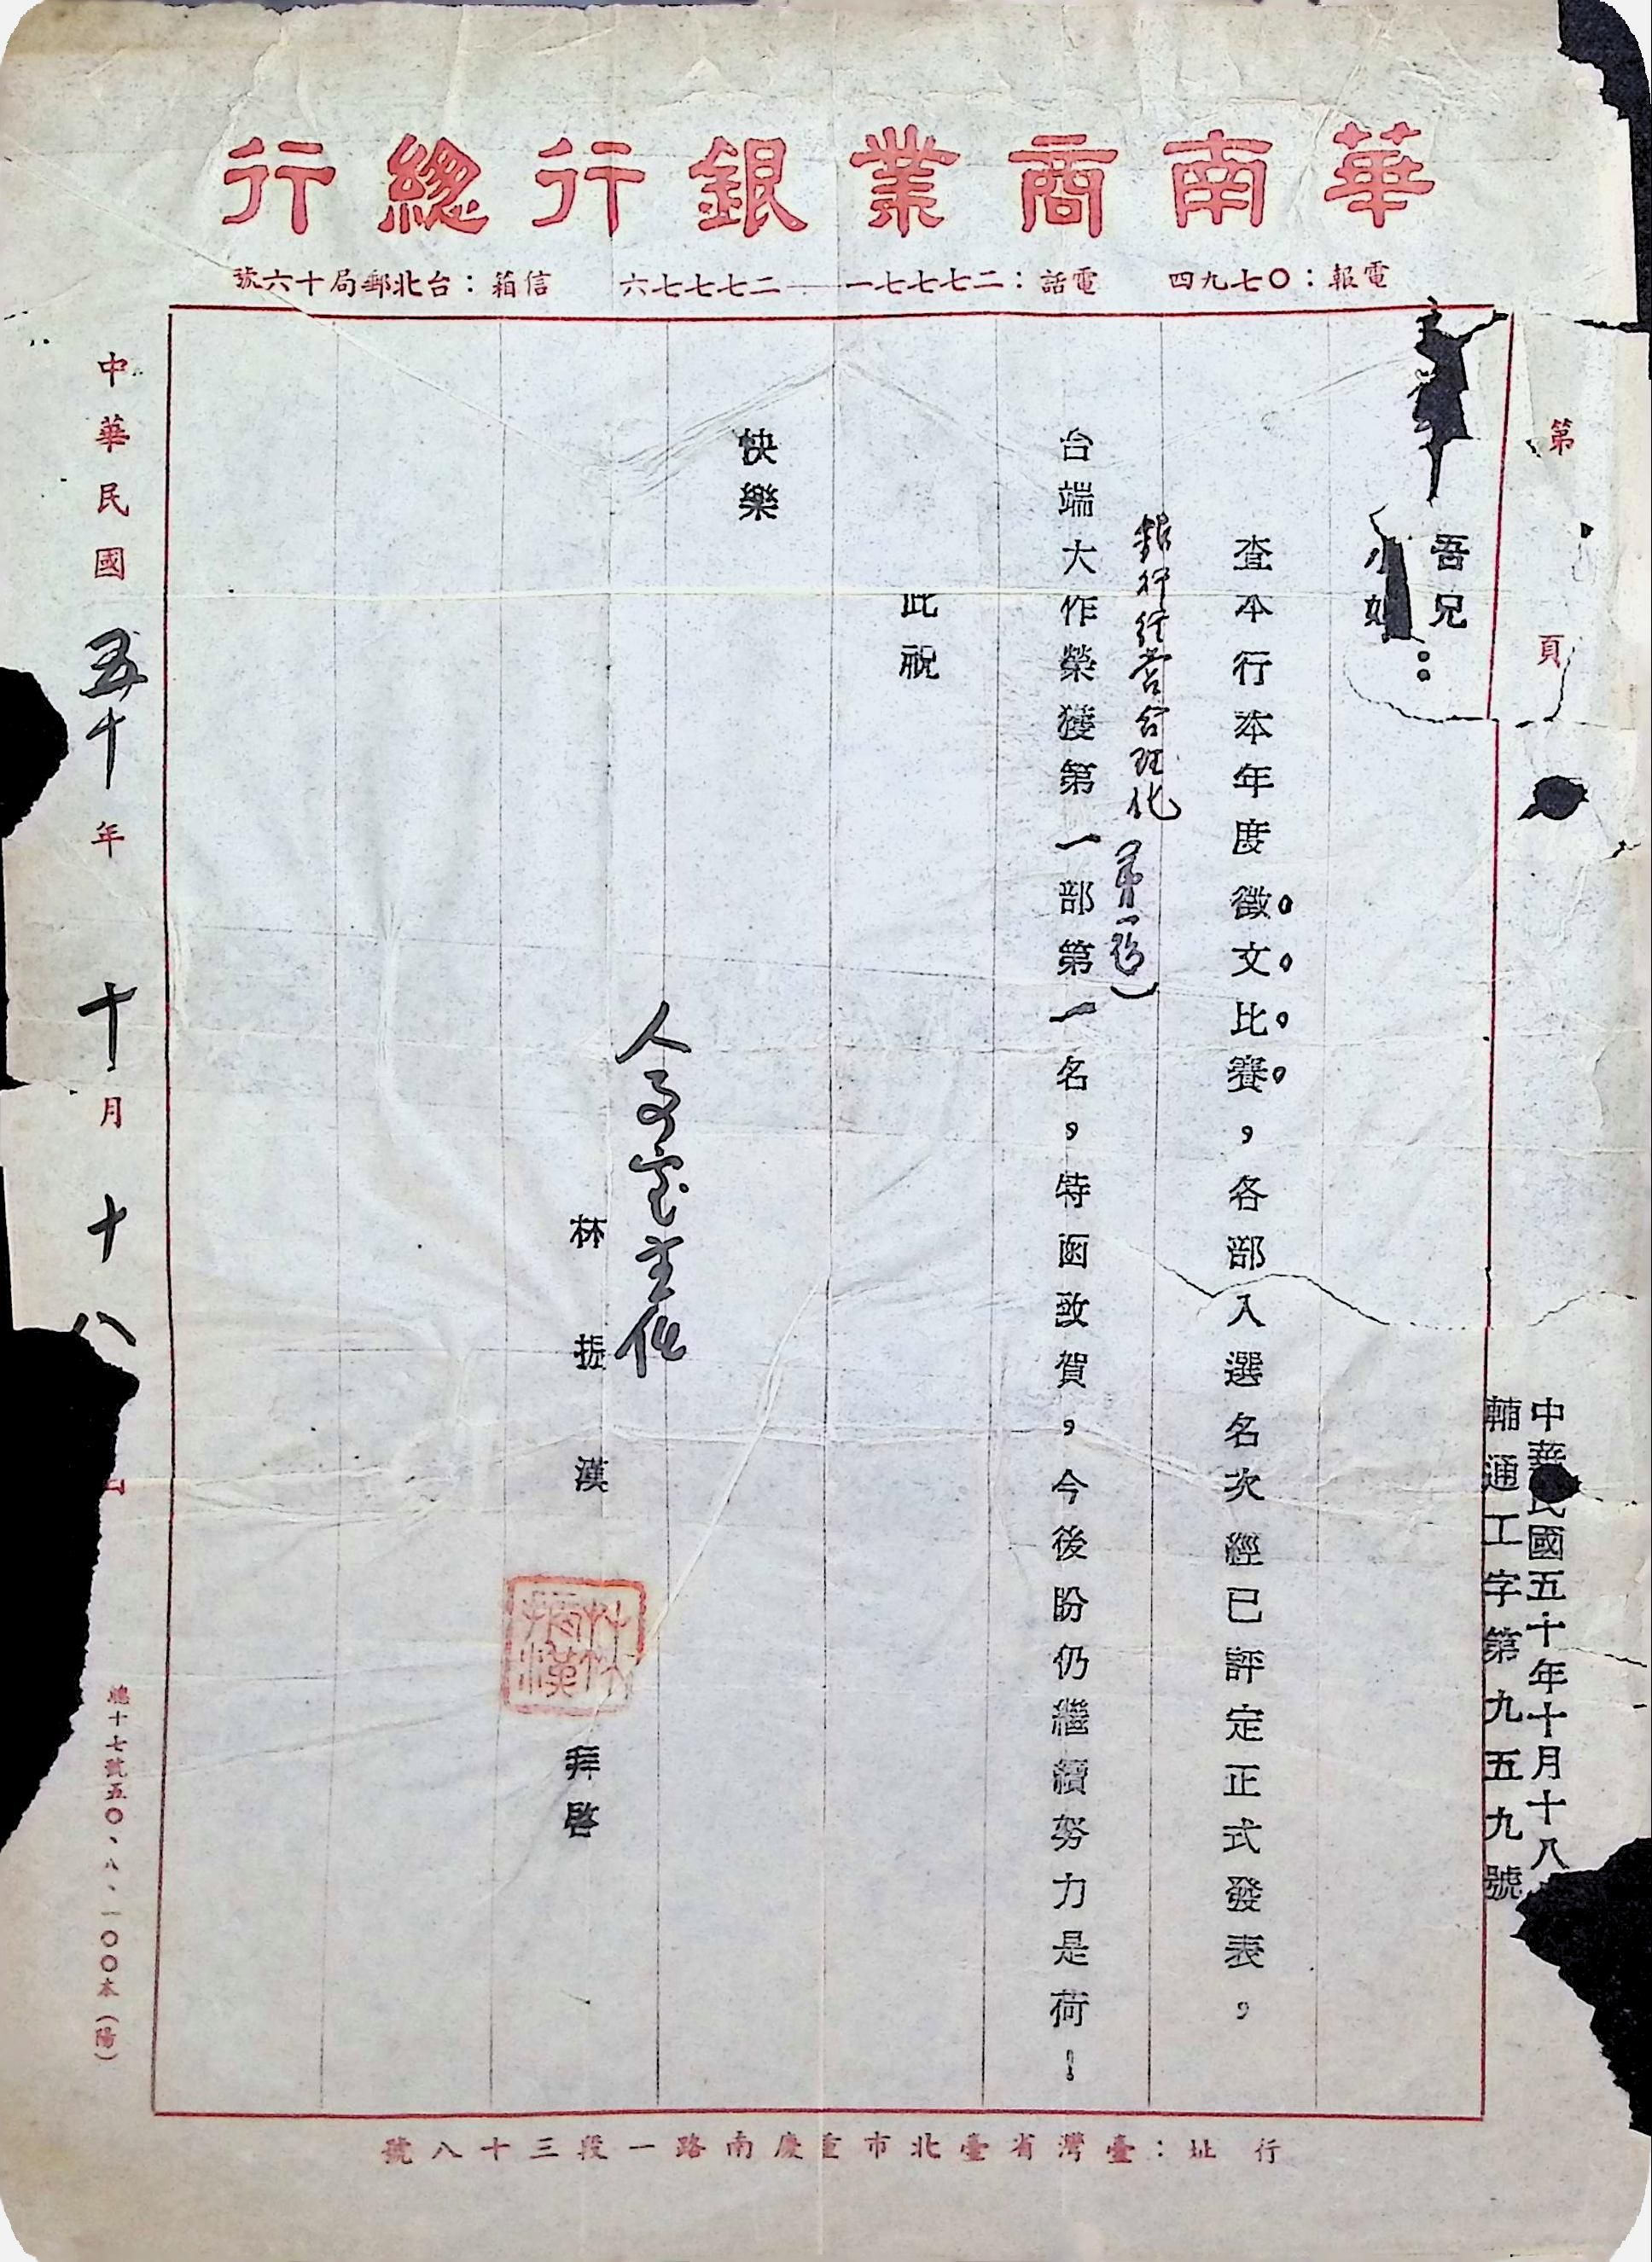 華南商業銀行總行
電報：０七九四　電話：二七七七一——二七七七六　信箱：台北郵局十六號
第　頁
中華民國五十年十月十八
輔通工字第九五九號
吾兄
小姐：
查本行本年度徵文比賽，各部入選名次經已評定正式發表，
銀行經營合理化
台端大作榮獲第一部第一名，特函致賀，今後盼仍繼續努力是荷！
此祝
快樂
人事室主任
林振漢
林振漢
拜啓
中華民國五十年十月十八
總十七號五〇、八、一〇〇本（陽）
行址：臺灣省臺北市重慶南路一段三十八號